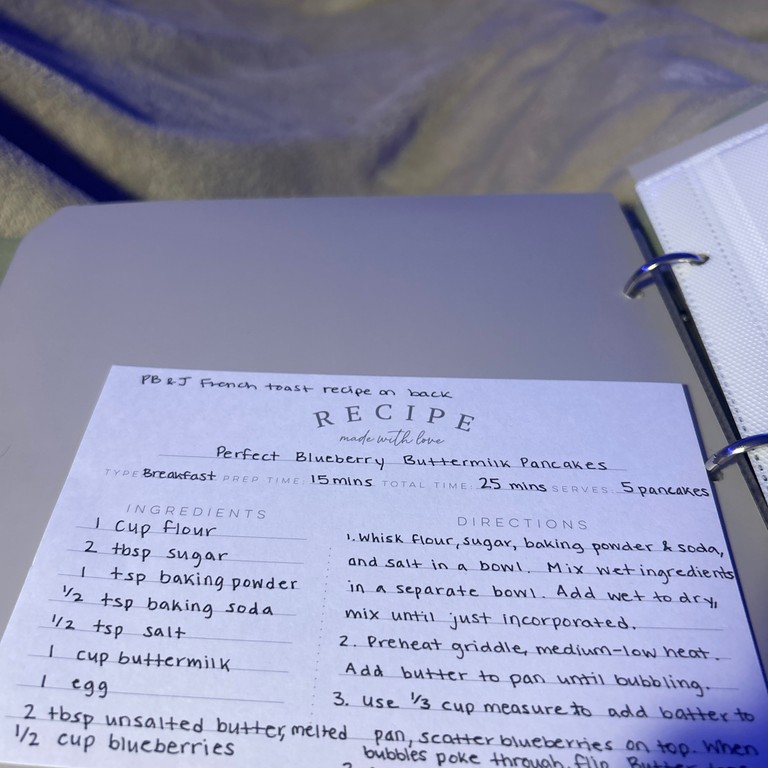 PB & J French toast recipe on back
RECIPE
made with love
Perfect Blueberry Buttermilk Pancakes
TYPE: Breakfast PREP TIME: 15 mins TOTAL TIME: 25 mins SERVES: 5 pancakes
INGREDIENTS
1 cup flour
2 tbsp sugar
1 tsp baking powder
1/2 tsp baking soda
1/2 tsp salt
1 cup buttermilk
1 egg
2 tbsp unsalted butter, melted
1/2 cup blueberries
DIRECTIONS
1. Whisk flour, sugar, baking powder & soda,
and salt in a bowl. Mix wet ingredients
in a separate bowl. Add wet to dry,
mix until just incorporated.
2. Preheat griddle, medium-low heat.
Add butter to pan until bubbling.
3. Use 1/3 cup measure to add batter to
pan, scatter blueberries on top. When
bubbles poke through, flip.